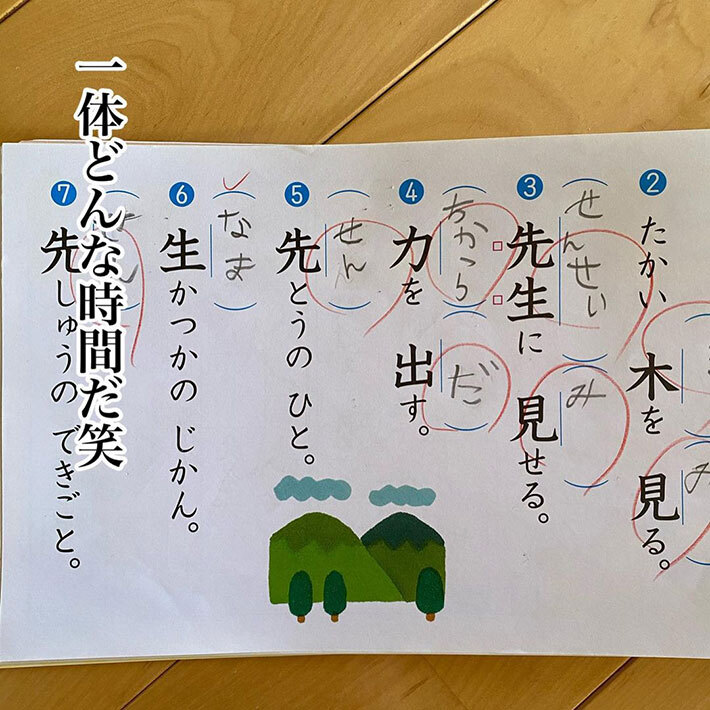 ❷ たかい 木を 見る。
(み
❸ 先生に 見せる。
(せんせい) (み)
❹ 力を 出す。
(ちから) (だ)
❺ 先とうの ひと。
(せん)
❻ 生かつかの じかん。
(なま)
❼ 先しゅうの できごと。
一体どんな時間だ笑